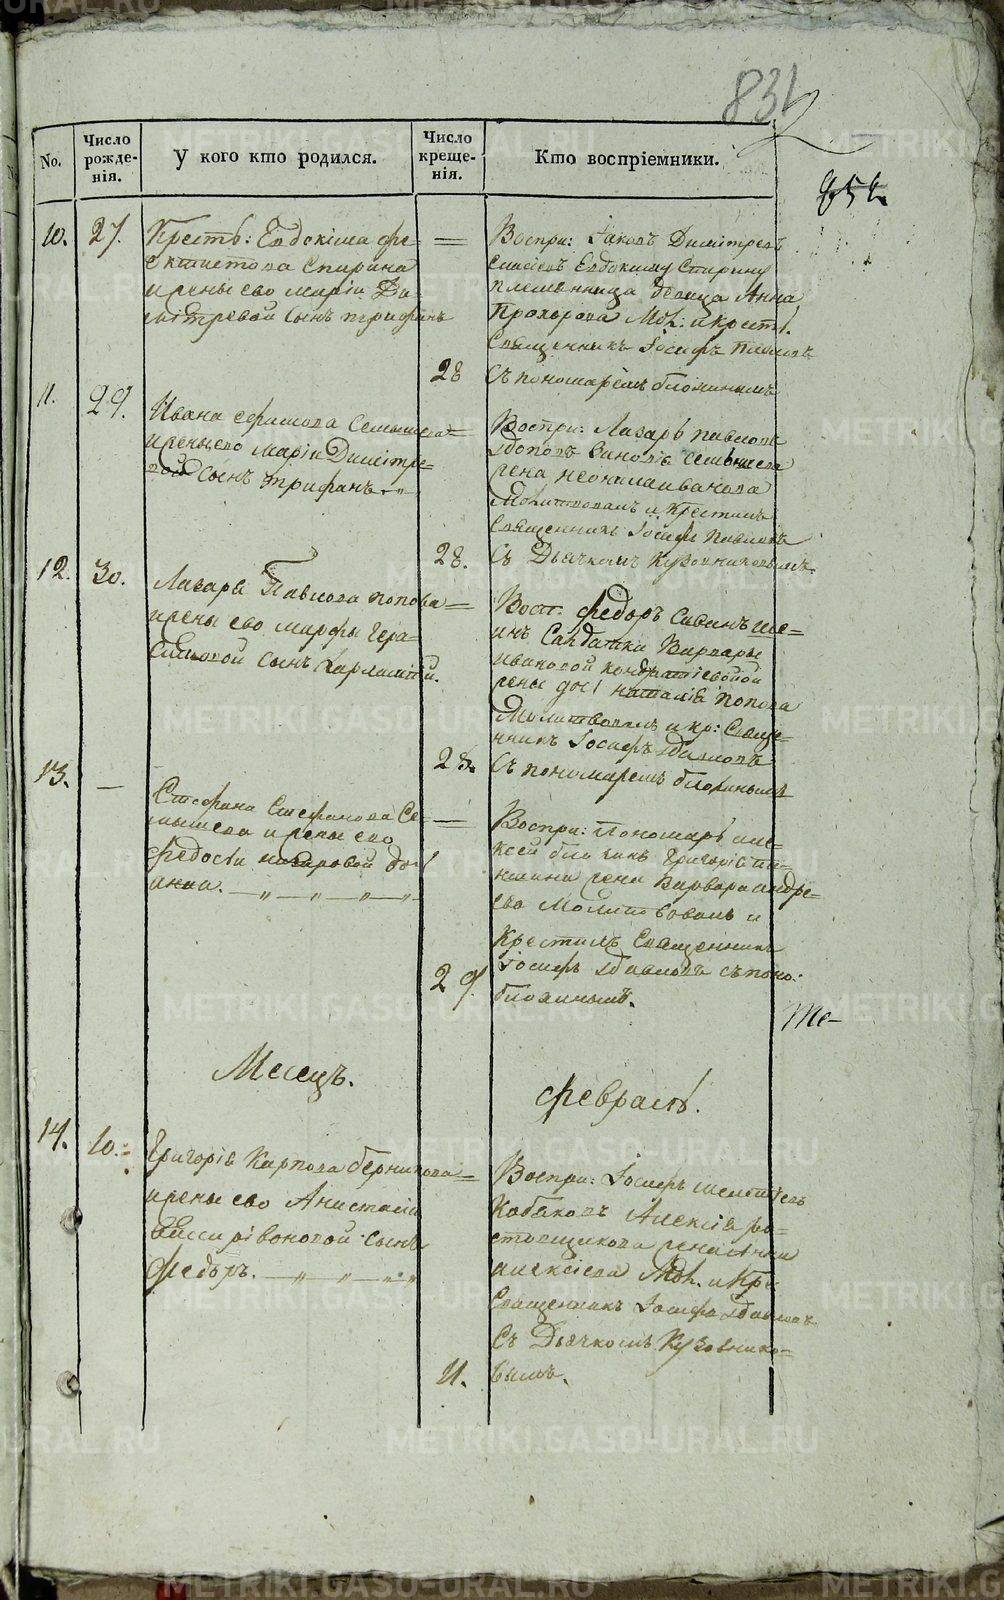 831
851.
No.
Число рожденія.
У кого кто родился.
Число крещенія.
Кто воспріемники.
10.
27.
Крестъ: Евдокима Фе-
октистова Спирина
и жены его Маріи Ди-
митревой сынъ
28
Воспри: Іаковъ Димітревъ
Евдокиму Спирину
племянница девица Анна
Прохорова Мол: и крест:
Священникъ Іосифъ Павловъ
съ пономаремъ Блохинымъ
11.
29.
Ивана Ефимова Семышева
и жены его Маріи Димітре-
вой сынъ Трифанъ.
28.
Воспри: Лазарь Павловъ
Поповъ Семышева
жена Иванова
Молитвовалъ и крестилъ
Священникъ Іосифъ Павловъ
съ Дьячкомъ Кузовниковымъ
12.
30.
Лазаря Павлова Попова
и жены его Марфы Гера-
симовой сынъ Харлампій.
28.
Вост: Федоръ Савинъ
Салдатки Варвары
Ивановой Кондратіевой
жены дочь Наталія Попова
Молитвовалъ и кр: Свяще-
нникъ Іосифъ Павловъ
съ пономаремъ Блохинымъ
13.
—
Стефана Стефанова Се-
мышева и жены его
Федосіи Назаровой дочь
Анна.
29.
Воспри: Пономарь Але-
ксей Блохинъ Григорія
жена Варвара Андре-
ева Молитвовалъ и
Крестилъ Священникъ
Іосифъ Павловъ съ поно:
Блохинымъ.
Ме-
Месецъ.
Февраль.
14.
10.
Григорія Карпова Берникова
и жены его Анистасіи
Виссаріоновой сынъ
Федоръ.
11.
Воспри: Іосифъ
Кабаковъ Алексія Ро-
стовщикова жена
Алексіева Мол. и Кре
Священникъ Іосифъ Павловъ
съ Дьячкомъ Кузовнико-
вымъ.
METRIKI.GASO-URAL.RU